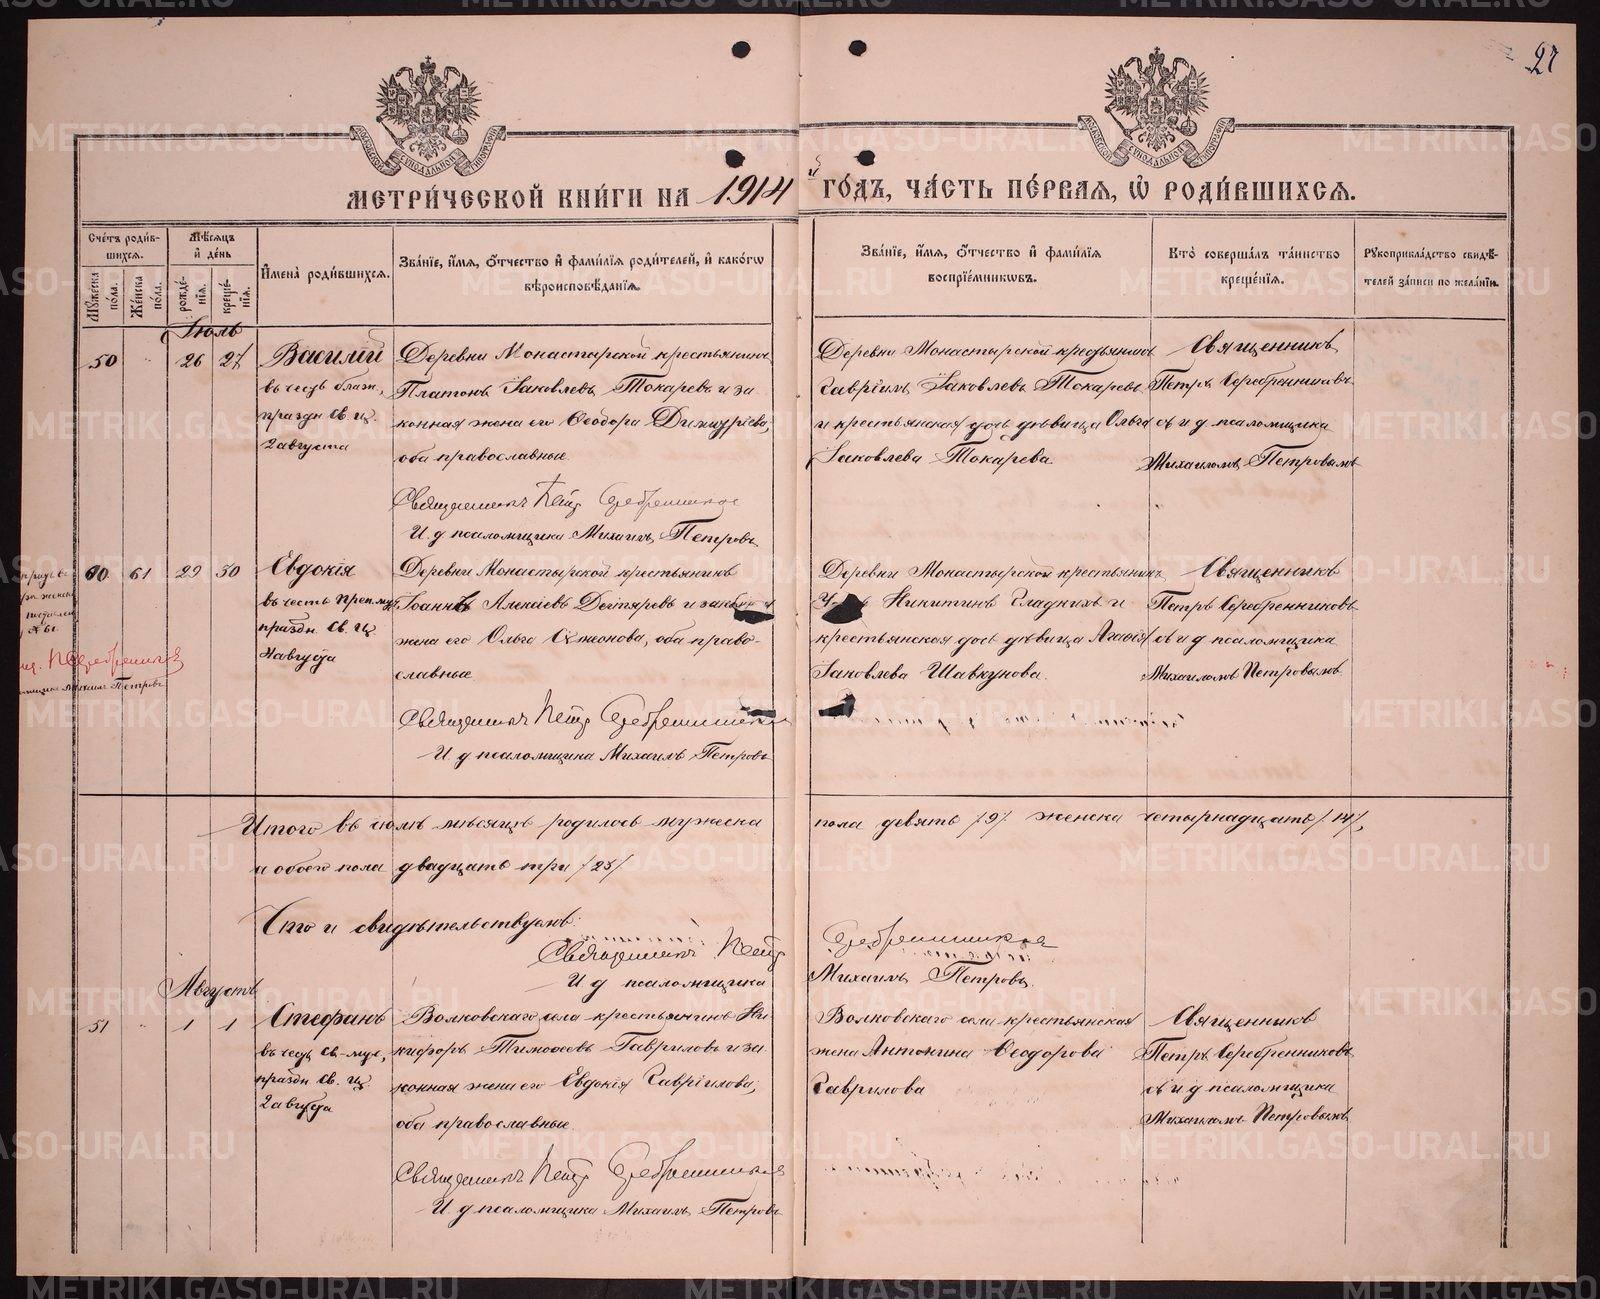 27
МЕТРИ́ЧЕСКОЙ КНИ́ГИ НА 1914 й ГО́ДЪ, ЧА́СТЬ ПЕ́РВАЯ, Ѡ҆ РОДИ́ВШИХСЯ.
Сче́тъ роди́в-
шихся.
Мꙋ́жеска по́ла.
Же́нска по́ла.
Мѣ́сяцъ
и҆ де́нь
рожде́-
нїя.
креще́-
нїя.
И҆мена̀ роди́вшихся.
Зва́нїе, и҆́мя, ѻ҆́тчество и҆ фами́лїя роди́телей, и҆ како́гѡ
вѣроисповѣ́данїя.
Зва́нїе, и҆́мя, ѻ҆́тчество и҆ фами́лїя
воспрїе́мникѡвъ.
Кто̀ соверша́лъ та́инство
креще́нїя.
Рꙋкоприкла́дство свидѣ́-
телей за́писи по жела́нїю.
Іюль
50 26 27
Василій
въ честь блаж.,
праздн св. ц.
2 августа
Деревни Монастырской крестьянинъ
Платонъ Іаковлевъ Токаревъ и за-
конная жена его Ѳеодора Димитріева,
оба православные
Священникъ Петръ Серебренниковъ
И. д. псаломщика Михаилъ Петровъ
Деревни Монастырской крестьянинъ
Гавріилъ Іаковлевъ Токаревъ
и крестьянская дочь дѣвица Ольга
Іаковлева Токарева.
Священникъ
Петръ Серебренниковъ
съ и д псаломщика
Михаиломъ Петровымъ
60 61 29 30
Евдокія
въ честь Преп. муч.
праздн. св. ц.
4 августа
Деревни Монастырской крестьянинъ
Іоаннъ Алексіевъ Дегтяревъ и законная
жена его Ольга Симеонова, оба право-
славные
Священникъ Петръ Серебренниковъ
И д псаломщика Михаилъ Петровъ
Деревни Монастырской крестьянинъ
Никитинъ Гладкихъ и
крестьянская дочь дѣвица Агафія
Іаковлева Шавкунова.
Священникъ
Петръ Серебренниковъ
съ и д псаломщика
Михаиломъ Петровымъ
№ 61
Михаилъ Петровъ
Итого въ іюлѣ мѣсяцѣ родилось мужеска пола девять /9/ женска четырнадцать /14/,
и обоего пола двадцать три /23/
Что и свидѣтельствуемъ:
Священникъ Петръ Серебренниковъ
И д псаломщика Михаилъ Петровъ.
Августъ
51 1 1
Стефанъ
въ честь св. муч.,
праздн св. ц.
2 августа
Волковскаго села крестьянинъ Ни-
кифоръ Тимоѳеевъ Гавриловъ и за-
конная жена его Евдокія Гавріилова,
оба православные
Священникъ Петръ Серебренниковъ
И д псаломщика Михаилъ Петровъ
Волковскаго села крестьянская
жена Антонина Ѳеодорова
Гаврилова
Священникъ
Петръ Серебренниковъ
съ и д псаломщика
Михаиломъ Петровымъ
METRIKI.GASO-URAL.RU